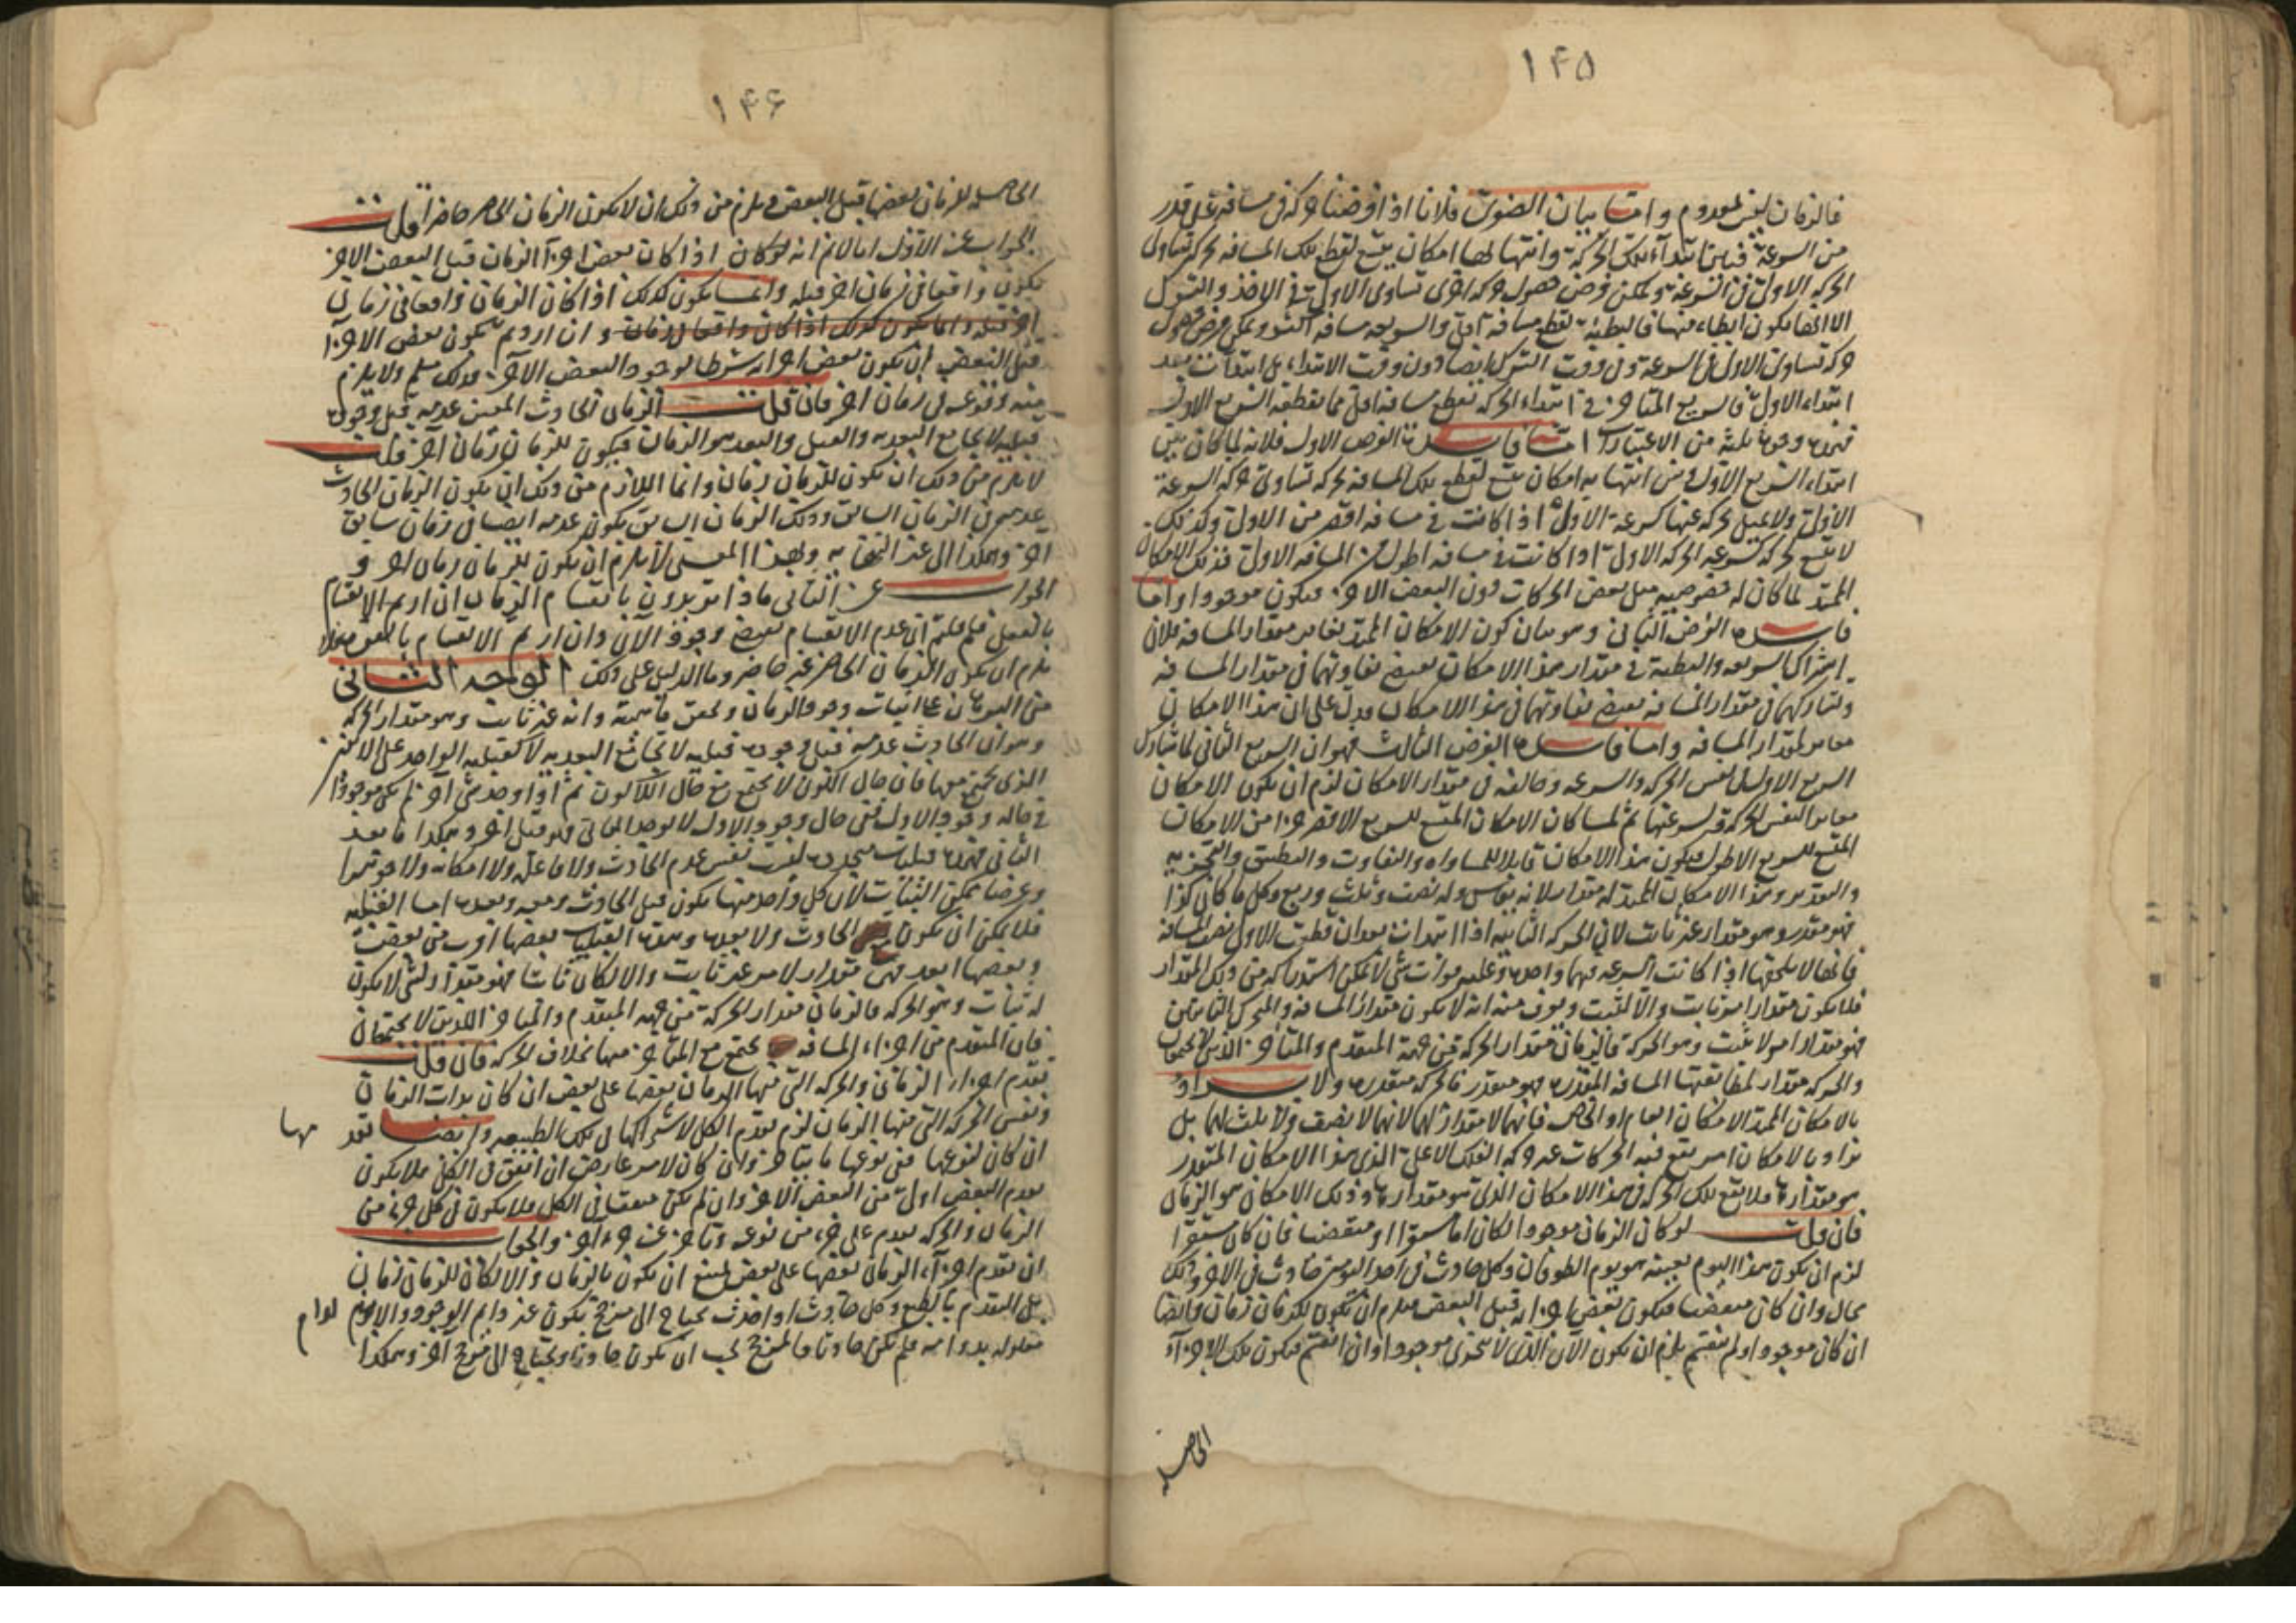 ١٤٥
فالزمان ليس بمعدوم واما بيان الضوى فلانا اذا فرضنا حركة فى مسافة على قدر
من السرعة فبين ابتداء تلك الحركة وانتهائها امكان يتسع لقطع تلك المسافة بحركة تساوى
الحركة الاولى فى السرعة ويمكن فرض حصول حركة اخرى تساوى الاولى فى الاخذ والترك
الا انها يكون ابطاء منها فالبطيئة تقطع مسافة اقل والسريعة مسافة اكثر ويمكن فرض حصول
حركة تساوى الاولى فى السرعة وفى وقت الترك ايضا دون وقت الابتداء بل ابتدأت بعد
ابتداء الاولى فالسريع المتاخر فى ابتداء الحركة تقطع مسافة اقل مما يقطعه السريع الاول
فهذه وجوه ثلثة من الاعتبارات اما فايدة الفرض الاول فلانه لما كان بين
ابتداء السريع الاول وبين انتهائه امكان يتسع لقطع تلك المسافة بحركة تساوى حركة السرعة
الاولى ولا يمتلى بحركة عنها كسرعة الاولى اذا كانت فى مسافة اقصر من الاولى وكذلك
لا يتسع لحركة كسرعة الحركة الاولى اذا كانت فى مسافة اطول من المسافة الاولى فذلك الامكان
الممتد لما كان له خصوصية ببعض الحركات دون البعض الاخر فيكون موجودا واما
فايدة الفرض الثانى وهو بيان كون الامكان الممتد مغاير لمقدار المسافة فلان
اشتراك السريعة والبطيئة فى مقدار هذا الامكان يقتضى تفاوتهما فى مقدار المسافة
وتشاركهما فى مقدار المسافة يقتضى تفاوتهما فى هذا الامكان فدل على ان هذا الامكان
مغاير لمقدار المسافة واما فايدة الفرض الثالث فهو ان السريع الثانى لما شارك
السريع الاول فى نفس الحركة والسرعة وخالفه فى مقدار الامكان لزم ان يكون الامكان
مغاير النفس الحركة وسرعتها ثم لما كان الامكان المتسع للسريع الاقصر جزءا من الامكان
المتسع للسريع الاطول فيكون هذا الامكان قابلا للمساواة والتفاوت والتطبيق والتجزية
والتقدير وهذا الامكان الممتد له مقدار لانه يقاس وله نصف وثلث وربع وكل ما كان كذا
فهو مقدر وهو مقدار غير ثابت لان الحركة الثانية اذا ابتدأت بعد ان قطعت الاولى نصف المسافة
فانها لا يلحقها اذا كانت السرعة فيهما واحدة وعليه فوات شئ لا يمكن استدراكه من ذلك المقدار
فلا يكون مقدار امر ثابت والا لثبت ويعرف منه انه لا يكون مقدار المسافة والمتحرك الثابتين
فهو مقدار امر لا يثبت وهو الحركة فالزمان مقدار الحركة من جهة المتقدم والمتاخر الذين لا يجتمعان
والحركة مقدار لمطابقتها المسافة المقدرة فهو مقدر فالحركة متقدرة ولا يراد
بالامكان الممتد الامكان العام او الخاص فانهما لا مقدار لهما لانهما لا نصف ولا ثلث لهما بل
نراد بالامكان امر يتسع فيه الحركات عند حركة الفلك الاعلى الذى هذا الامكان المتقدر
هو مقدارها فلا يتسع تلك الحركة فى هذا الامكان الذى هو مقدارها وذلك الامكان هو الزمان
فان قلت لو كان الزمان موجودا لكان اما مستقرا او منقضيا فان كان مستقرا
لزم ان يكون هذا اليوم بعينه هو يوم الطوفان وكل حادث فى احد اليومين حادث فى الاخر وذلك
محال وان كان منقضيا فيكون بعض اجزائه قبل البعض فيلزم ان يكون للزمان زمان وايضا
ان كان موجودا ولم ينقسم يلزم ان يكون الآن الذى لا يتجزى موجودا وان انقسم فيكون تلك الاجزاء
الحاصلة
١٤٦
الحاصلة للزمان بعضها قبل البعض ويلزم من ذلك ان لا يكون الزمان الحاضر حاضرا قلت
الجواب عن الاول انا لا نم انه لو كان اذا كان بعض اجزاء الزمان قبل البعض الاخر
يكون واقعا فى زمان اخر قبله وانما يكون كذلك اذا كان الزمان واقعا فى زمان
اخر قبله وانما يكون كذلك اذا كان واقعا فى زمان وان اردتم بكون بعض الاجزاء
قبل البعض ان يكون بعض اجزائه شرطا لوجود البعض الآخر فذلك مسلم ولا يلزم
منه وقوعه فى زمان اخر فان قلت الزمان الحادث المعين عدمه قبل وجوده
قبلية لا يجامع البعدية والقبل والبعد هو الزمان فيكون للزمان زمان اخر قلت
لا يلزم من ذلك ان يكون للزمان زمان وانما اللازم من ذلك ان يكون الزمان الحادث
عدمه فى الزمان السابق وذلك الزمان السابق يكون عدمه ايضا فى زمان سابق
اخر وهكذا الى غير النهاية وبهذا المعنى لا يلزم ان يكون للزمان زمان اخر و
الجواب عن الثانى ماذا تريدون بانقسام الزمان ان اردتم الانقسام
بالفعل فلم قلتم ان عدم الانقسام يقتضى وجود الآن وان اردتم الانقسام بالقوة فلا
يلزم ان يكون الزمان الحاضر غير حاضر وما الدليل على ذلك الوجه الثانى
من البرهان على اثبات وجود الزمان وتحقق ماهيته وانه غير ثابت وهو مقدار الحركة
وهو ان الحادث عدمه قبل وجوده قبلية لا تجامع البعدية لا كقبلية الواحد على الاثنين
الذى يجتمع معها فان حال الكون لا يجتمع مع حال اللاكون ثم اذا وجد شئ آخر لم يكن موجودا
فى حالة وجود الاول ففى حال وجود الاول لا يوجد الثانى فهو قبل اخر وهكذا فاما بعد
الثانى فهذه قبليات متجددة ليست نفس عدم الحادث ولا فاعله ولا امكانه ولا جوهرا
وعرضا يمكن الثبات لان كل واحد منها يكون قبل الحادث ومعه وبعده اما القبلية
فلا يمكن ان يكون مع الحادث ولا بعده وهذه القبليات بعضها اقرب من بعض
وبعضها ابعد فهى مقدار لامر غير ثابت والا لكان ثابتا فهو مقدار لشئ لا يكون
له ثبات وهو الحركة فالزمان مقدار الحركة من جهة المتقدم والمتاخر اللذين لا يجتمعان
فان المتقدم من اجزاء المسافة يجتمع مع المتاخر منها بخلاف الحركة فان قلت
تقدم اجزاء الزمان والحركة التى فيها الزمان بعضها على بعض ان كان بذات الزمان
ونفس الحركة التى فيها الزمان لزم تقدم الكل لاشتراكها فى تلك الطبيعة وايضا تقد
مها
ان كان لنوعها فمن نوعها ما يتاخر وان كان لامر عارض ان اتفق فى الكل فلا يكون
تقدم البعض اولى من البعض الاخر وان لم يكن متفقا فى الكل فلا يكون فى كل جزء من
الزمان والحركة تقدم على جزء من نوعه وتاخر عن جزء اخر والجواب
ان تقدم اجزاء الزمان بعضها على بعض يمتنع ان يكون بالزمان والا لكان للزمان زمان
بل المتقدم بالطبع وكل حادث اذا حدث يحتاج الى مرجح يكون غير دائم الوجود والا لدام
لدوام
معلوله بدوامه فلم يكن حادثا فالمرجح يجب ان يكون حادثا ويحتاج الى مرجح آخر وهكذا